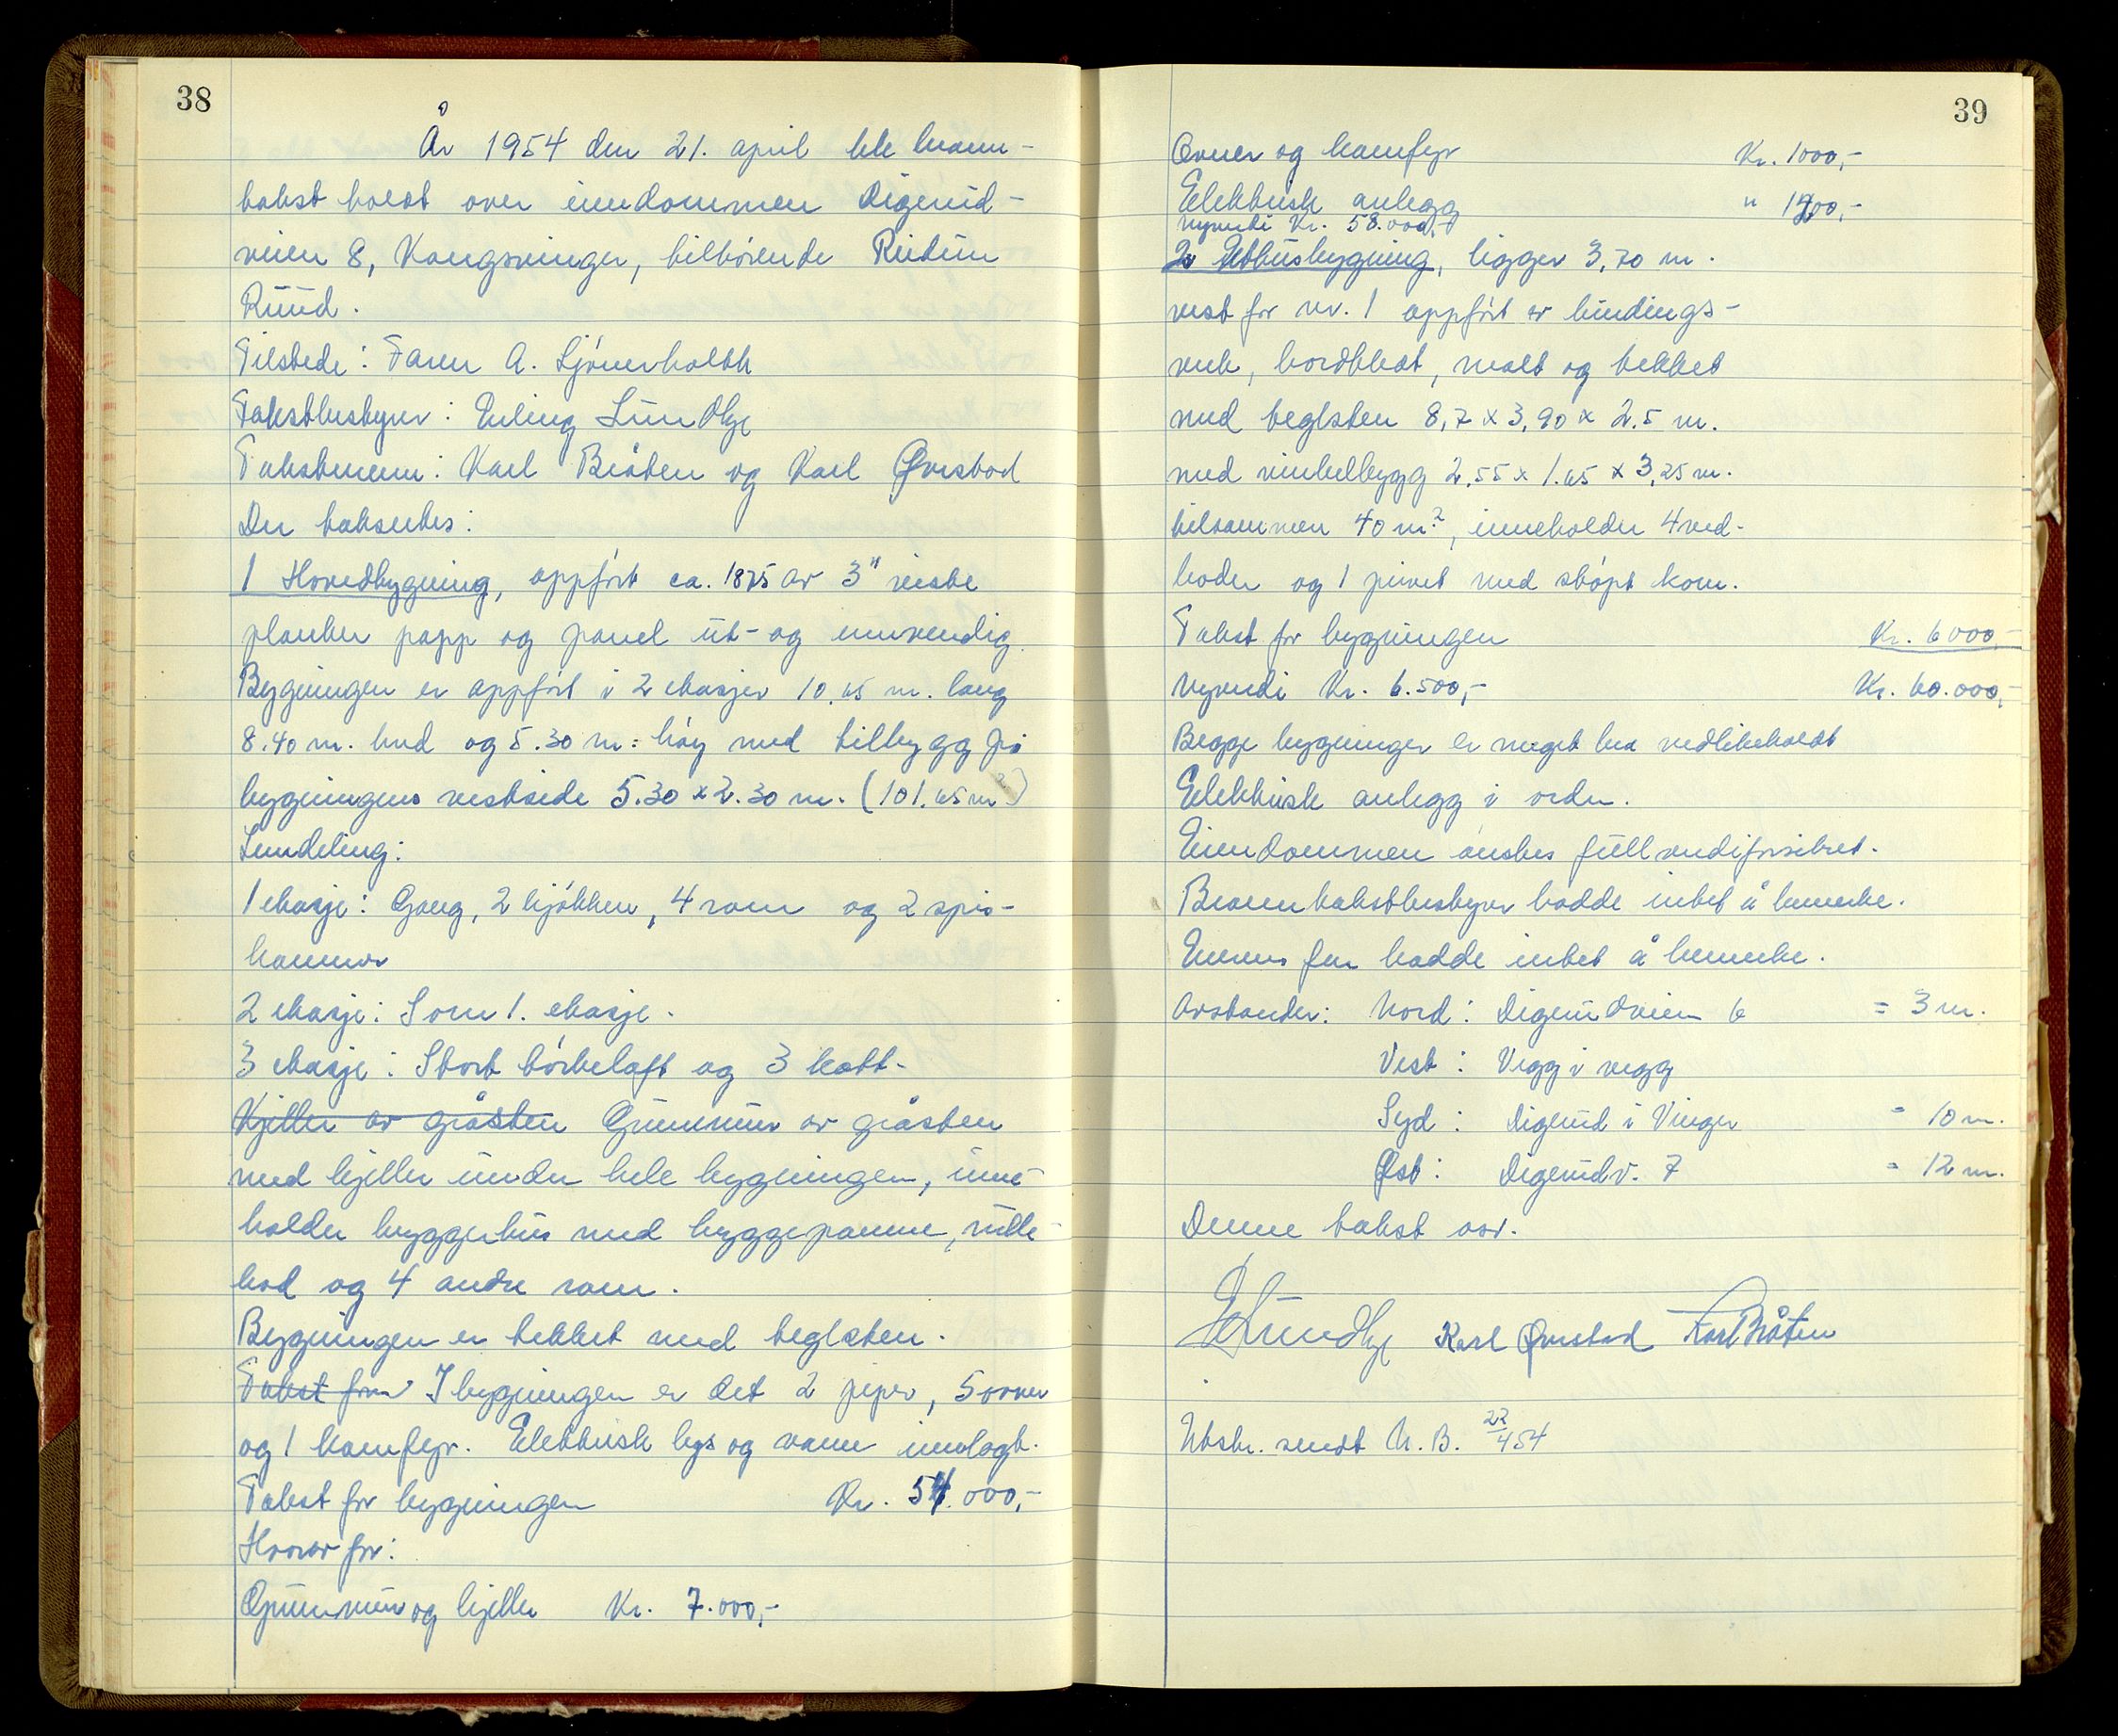 38
År 1954 den 21. april ble brann-
takst holdt over eiendommen Digerud-
veien 8, Kongsvinger, tilhørende Reidun
Ruud.
Tilstede: Faren A. Sjónerholth
Takstbestyrer: Erling Lundby
Takstmenn: Karl Bråten og Karl Øvrstad
Der takseres:
1 Hovedbygning, oppført ca. 1875 av 3" reiste
planker papp og panel ut- og innvendig.
Bygningen er oppført i 2 etasjer 10.65 m. lang
8.40 m. bred og 5.30 m. høy med tilbygg på
bygningens vestside 5.30 x 2.30 m. (101.65 m²)
Inndeling:
1 etasje: Gang, 2 kjøkken, 4 rom og 2 spis-
kammer
2 etasje: Som 1. etasje.
3 etasje: Stort tørkeloft og 3 kott.
Kjeller av gråsten Grunnmur av gråsten
med kjeller under hele bygningen, inne-
holder bryggerhus med bryggepanne, rulle-
bod og 4 andre rom.
Bygningen er tekket med teglsten.
Takst for I bygningen er det 2 piper, 5 ovner
og 1 komfyr. Elektrisk lys og vann innlagt.
Takst for bygningen Kr. 54.000,-
Hvorav for:
Grunnmur og kjeller Kr. 7.000,-
39
Ovner og komfyr Kr. 1000,-
Elektrisk anlegg " 1200,-
nyverdi Kr. 58.000,-
2 Uthusbygning, ligger 3,70 m.
vest for nr. 1 oppført av bindings-
verk, bordkledt, malt og tekket
med teglsten 8,7 x 3,90 x 2.5 m.
med vinkelbygg 2,55 x 1.65 x 3,25 m.
tilsammen 40 m², inneholder 4 ved-
boder og 1 privet med støpt kom.
Takst for bygningen Kr. 6000,-
Nyverdi Kr. 6.500,- Kr. 60.000,-
Begge bygninger er meget bra vedlikeholdt
Elektrisk anlegg i orden.
Eiendommen ønskes fullverdiforsikret.
Branntakstbestyrer hadde intet å bemerke.
Eierens far hadde intet å bemerke.
Avstander: Nord: Digerudveien 6 = 3 m.
Vest: Vegg i vegg
Syd: Digerud i Vinger = 10 m.
Øst: Digerudv. 7 = 12 m.
Denne takst avr.
E Lundby Karl Øvrstad Karl Bråten
Utskr. sendt N.B. 22/4 54